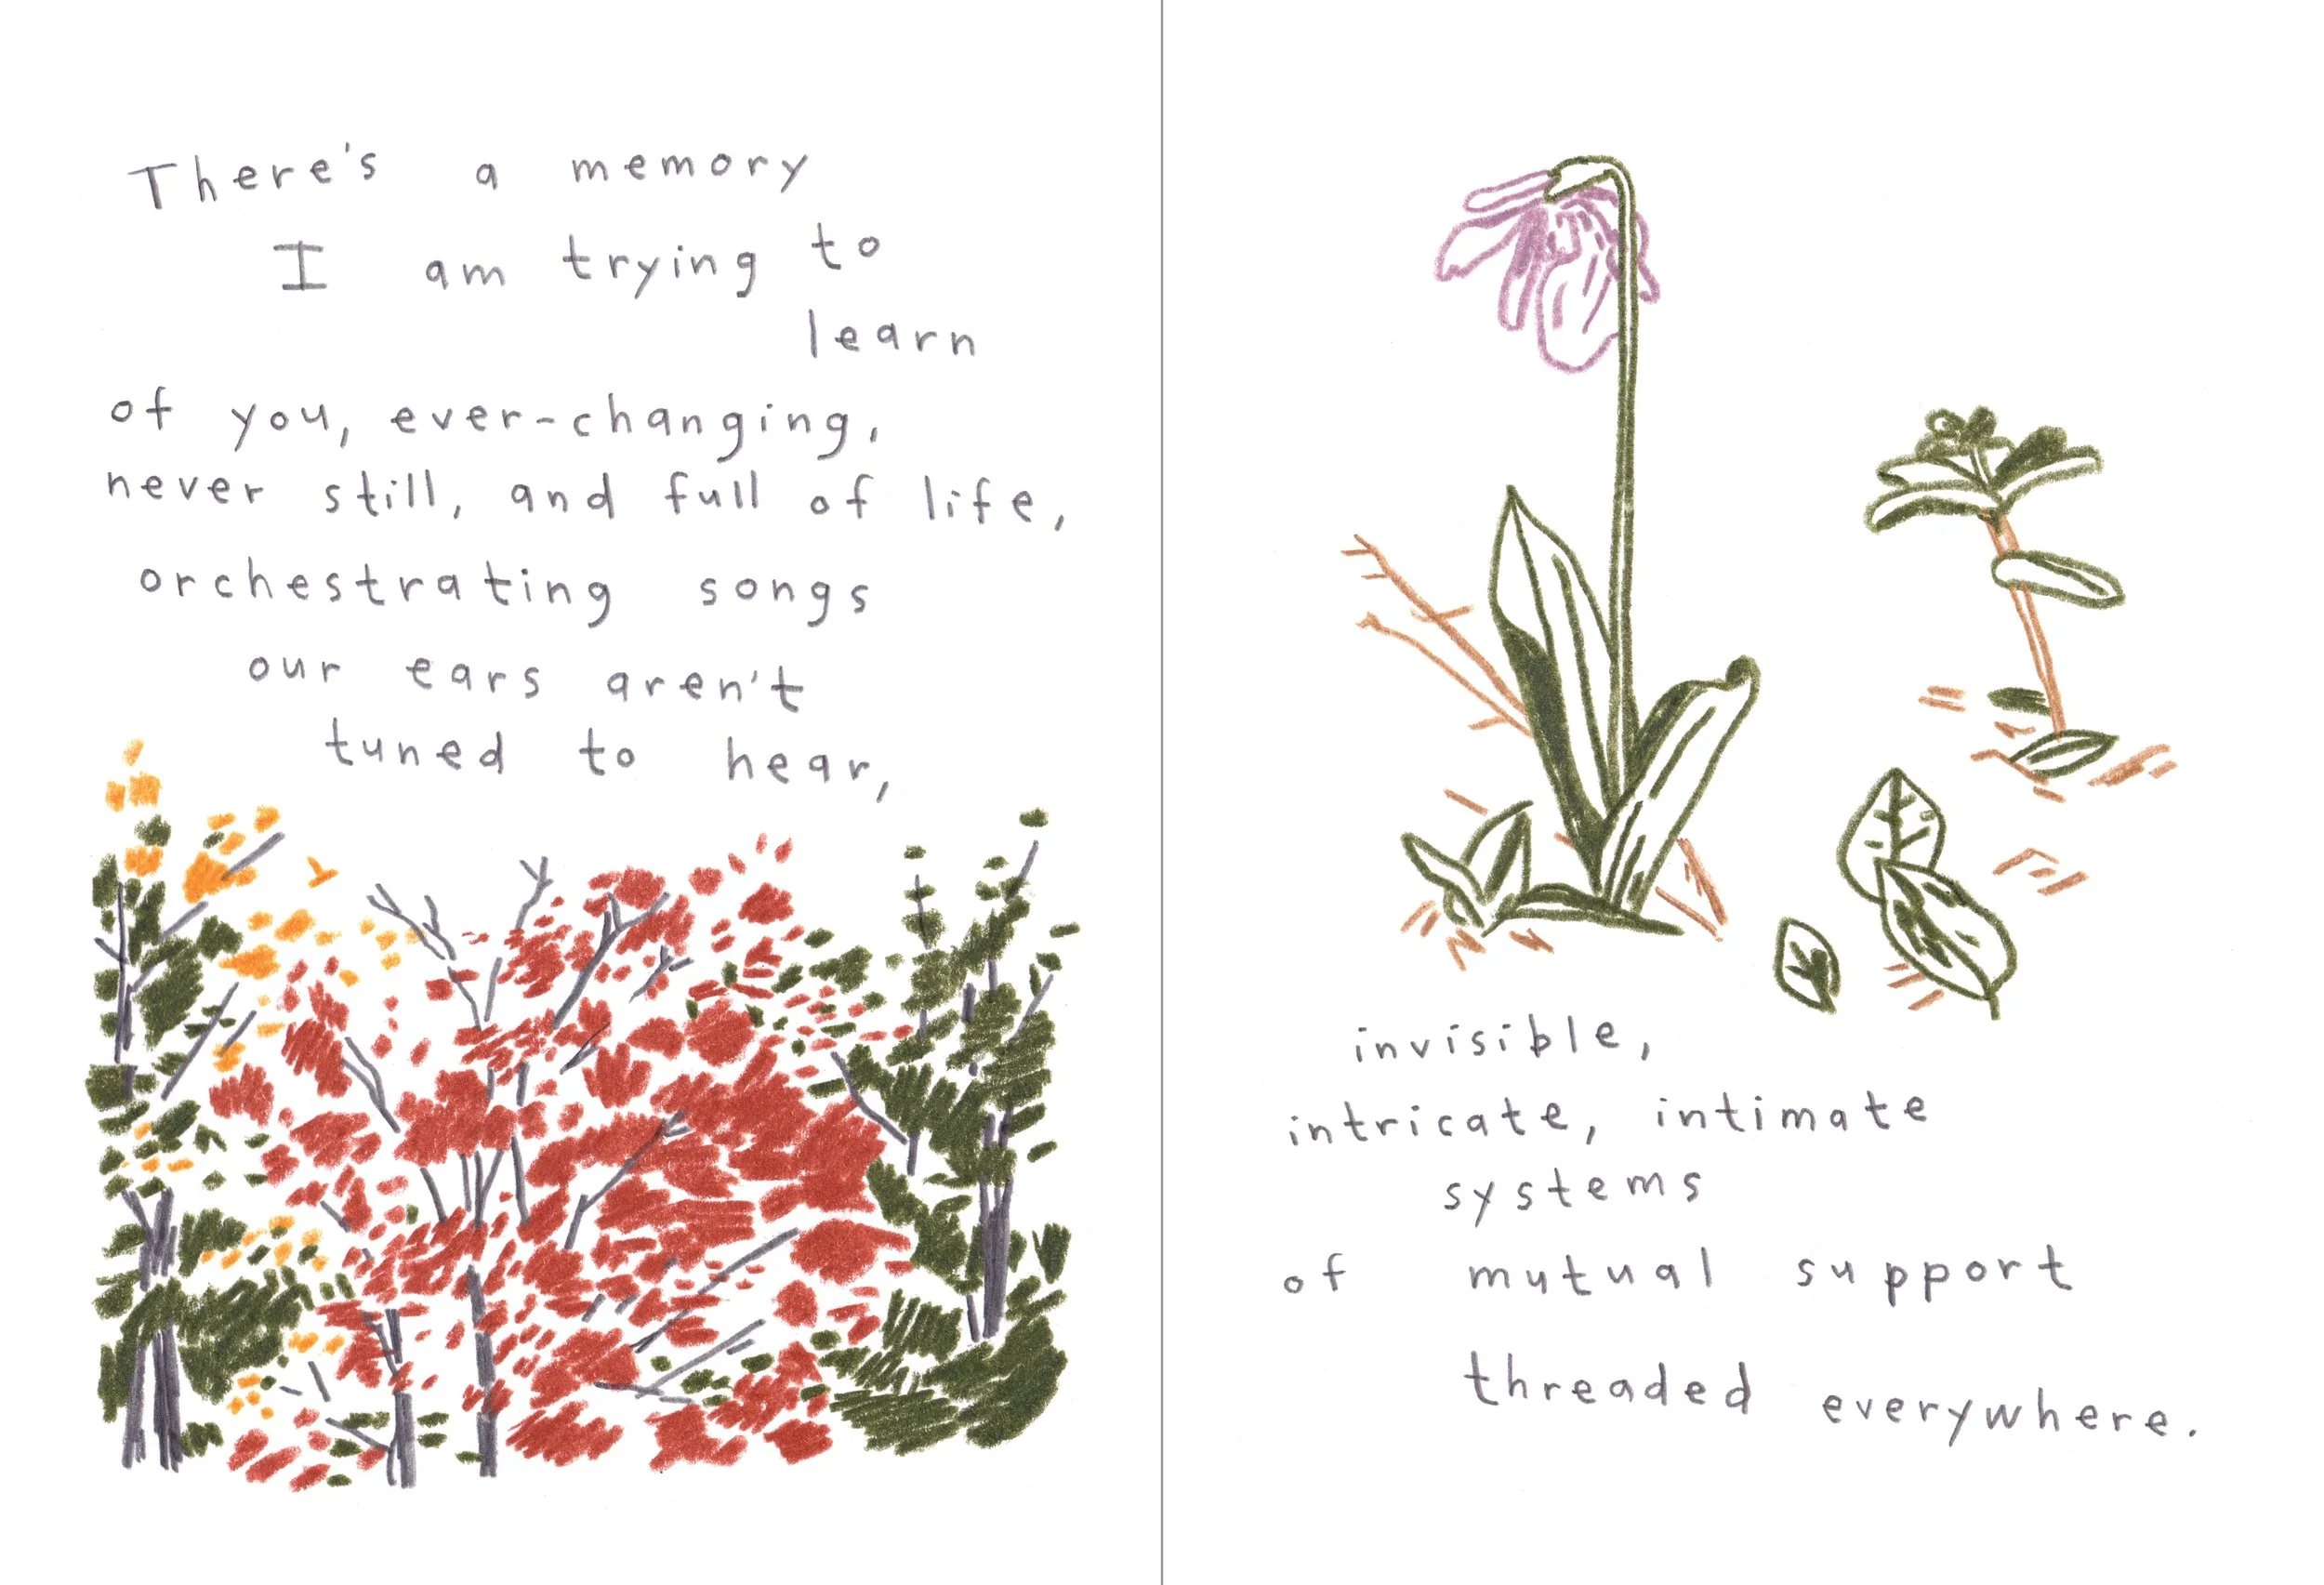 There's a memory
I am trying to
learn
of you, ever-changing,
never still, and full of life,
orchestrating songs
our ears aren't
tuned to hear,
invisible,
intricate, intimate
systems
of mutual support
threaded everywhere.